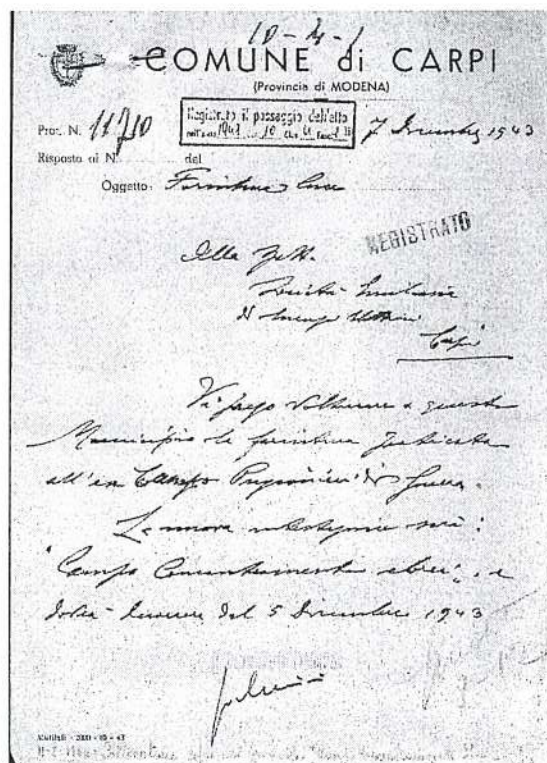 10-4-1
COMUNE di CARPI
(Provincia di MODENA)
Registrato il passaggio dell'atto
nell'anno 1943 10 Clas. 4 Fasc. 1
Prot. N. 11710
7 Dicembre 1943
Risposta al N. del
Oggetto: Fornitura luce
REGISTRATO
Alla
Società Emiliana
di
Carpi
Vi prego volturare a questo
Municipio la fornitura intestata
all'ex Campo Prigionieri di Guerra.
La nuova intestazione sarà:
"Campo Concentramento ebrei", e
dovrà decorrere dal 5 Dicembre 1943